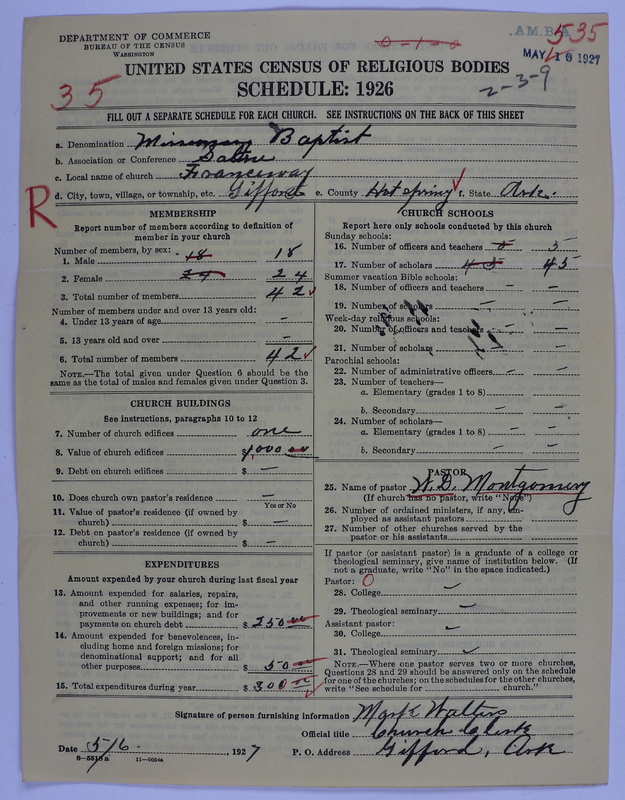 DEPARTMENT OF COMMERCE
BUREAU OF THE CENSUS
WASHINGTON
0-1-0
A.M.B.A.
535
MAY 10 1927
UNITED STATES CENSUS OF RELIGIOUS BODIES
2-3-9
35
SCHEDULE: 1926
FILL OUT A SEPARATE SCHEDULE FOR EACH CHURCH. SEE INSTRUCTIONS ON THE BACK OF THIS SHEET
a. Denomination Missionary Baptist
b. Association or Conference Saline
c. Local name of church Franceway
R
d. City, town, village, or township, etc. Gifford e. County Hot Spring f. State Ark.
MEMBERSHIP
Report number of members according to definition of
member in your church
Number of members, by sex:
1. Male 18 18
2. Female 24 24
3. Total number of members 42
Number of members under and over 13 years old:
4. Under 13 years of age —
5. 13 years old and over —
6. Total number of members 42
NOTE.—The total given under Question 6 should be the
same as the total of males and females given under Question 3.
CHURCH BUILDINGS
See instructions, paragraphs 10 to 12
7. Number of church edifices one
8. Value of church edifices $1,000 00
9. Debt on church edifices $ —
10. Does church own pastor's residence —
Yes or No
11. Value of pastor's residence (if owned by
church) $ —
12. Debt on pastor's residence (if owned by
church) $ —
EXPENDITURES
Amount expended by your church during last fiscal year
13. Amount expended for salaries, repairs,
and other running expenses; for im-
provements or new buildings; and for
payments on church debt $ 250 00
14. Amount expended for benevolences, in-
cluding home and foreign missions; for
denominational support; and for all
other purposes $ 50 00
15. Total expenditures during year $ 300 00
CHURCH SCHOOLS
Report here only schools conducted by this church
Sunday schools:
16. Number of officers and teachers 5 5
17. Number of scholars 45 45
Summer vacation Bible schools:
18. Number of officers and teachers — —
19. Number of scholars — —
Week-day religious schools:
20. Number of officers and teachers — —
21. Number of scholars — —
Parochial schools:
22. Number of administrative officers — —
23. Number of teachers—
a. Elementary (grades 1 to 8) — —
b. Secondary — —
24. Number of scholars—
a. Elementary (grades 1 to 8) — —
b. Secondary — —
PASTOR
25. Name of pastor W. D. Montgomery
(If church has no pastor, write "None")
26. Number of ordained ministers, if any, em-
ployed as assistant pastors
27. Number of other churches served by the
pastor or his assistants
If pastor (or assistant pastor) is a graduate of a college or
theological seminary, give name of institution below. (If
not a graduate, write "No" in the space indicated.)
Pastor: 0
28. College
29. Theological seminary
Assistant pastor:
30. College
31. Theological seminary
NOTE.—Where one pastor serves two or more churches,
Questions 28 and 29 should be answered only on the schedule
for one of the churches; on the schedules for the other churches,
write "See schedule for church."
Signature of person furnishing information Mark Walters
Official title Church Clerk
Date 5/6. 1927 P. O. Address Gifford, Ark
8-5515a 11-9054a